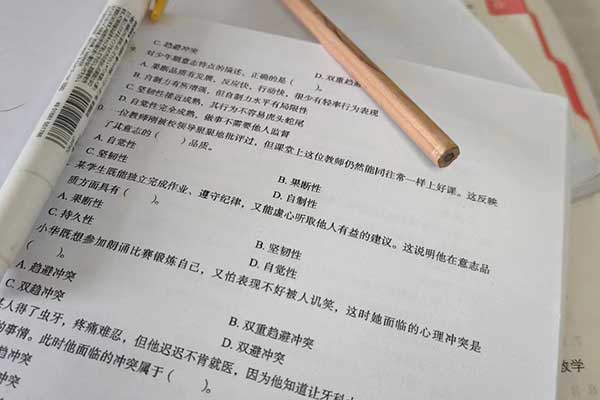 C. 趋避冲突
D. 双重趋避
对少年期意志特点的描述，正确的是（　　）。
A. 果断品质有发展，反应快，行动快，很少有轻率行为表现
B. 自制力有所增强，但自制力水平有局限性
C. 坚韧性接近成熟，其行为不容易虎头蛇尾
D. 自觉性完全成熟，做事不需要他人监督
一位教师刚被校领导狠狠地批评过，但课堂上这位教师仍然能同往常一样上好课。这反映
了其意志的（　　）品质。
A. 自觉性
B. 果断性
C. 坚韧性
D. 自制性
某学生既能独立完成作业、遵守纪律，又能虚心听取他人有益的建议。这说明他在意志品
质方面具有（　　）。
A. 果断性
B. 坚韧性
C. 持久性
D. 自觉性
小华既想参加朗诵比赛锻炼自己，又怕表现不好被人讥笑，这时她面临的心理冲突是
（　　）。
A. 趋避冲突
B. 双重趋避冲突
C. 双趋冲突
D. 双避冲突
人得了虫牙，疼痛难忍，但他迟迟不肯就医，因为他知道让牙科
的事情。此时他面临的冲突属于（　　）。
趋冲突
冲突